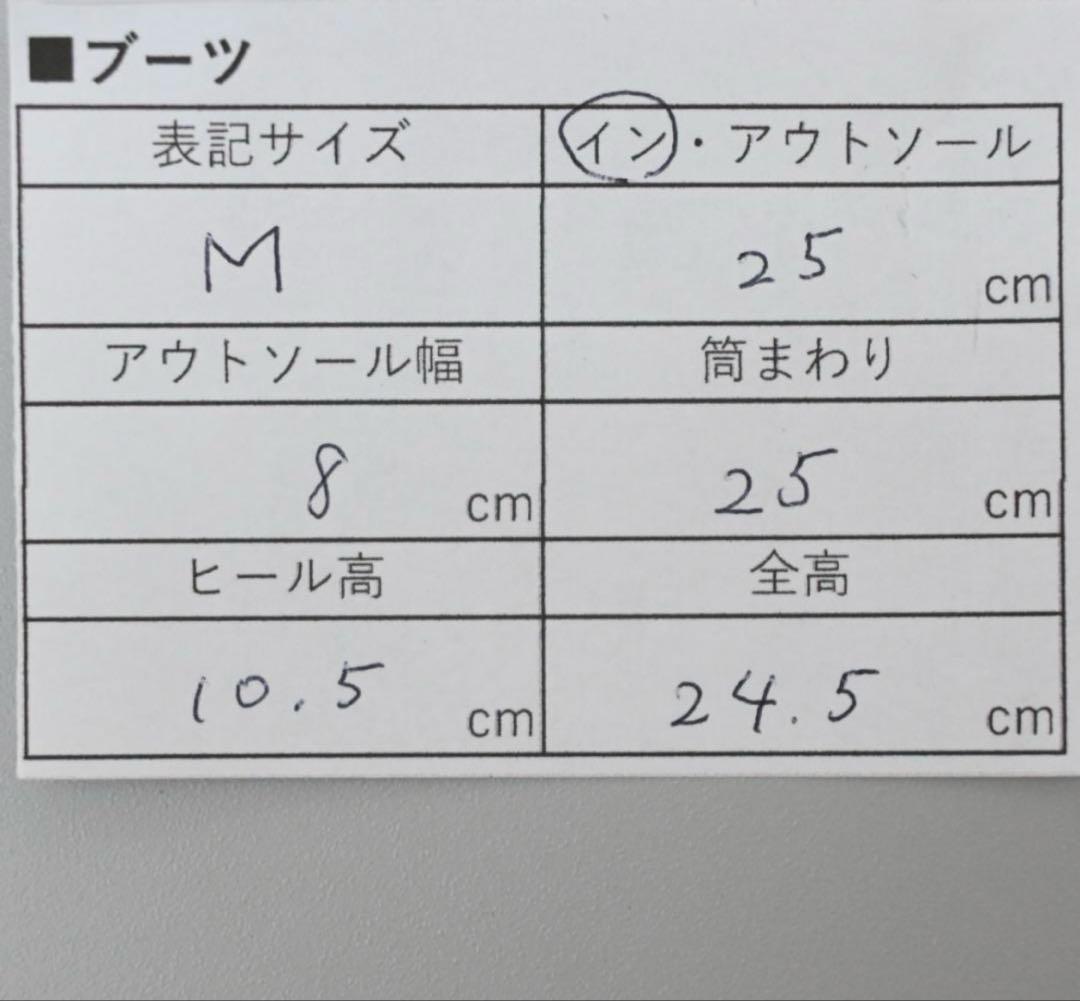 ■ブーツ
表記サイズ イン・アウトソール
M 25 cm
アウトソール幅 筒まわり
8 cm 25 cm
ヒール高 全高
10.5 cm 24.5 cm